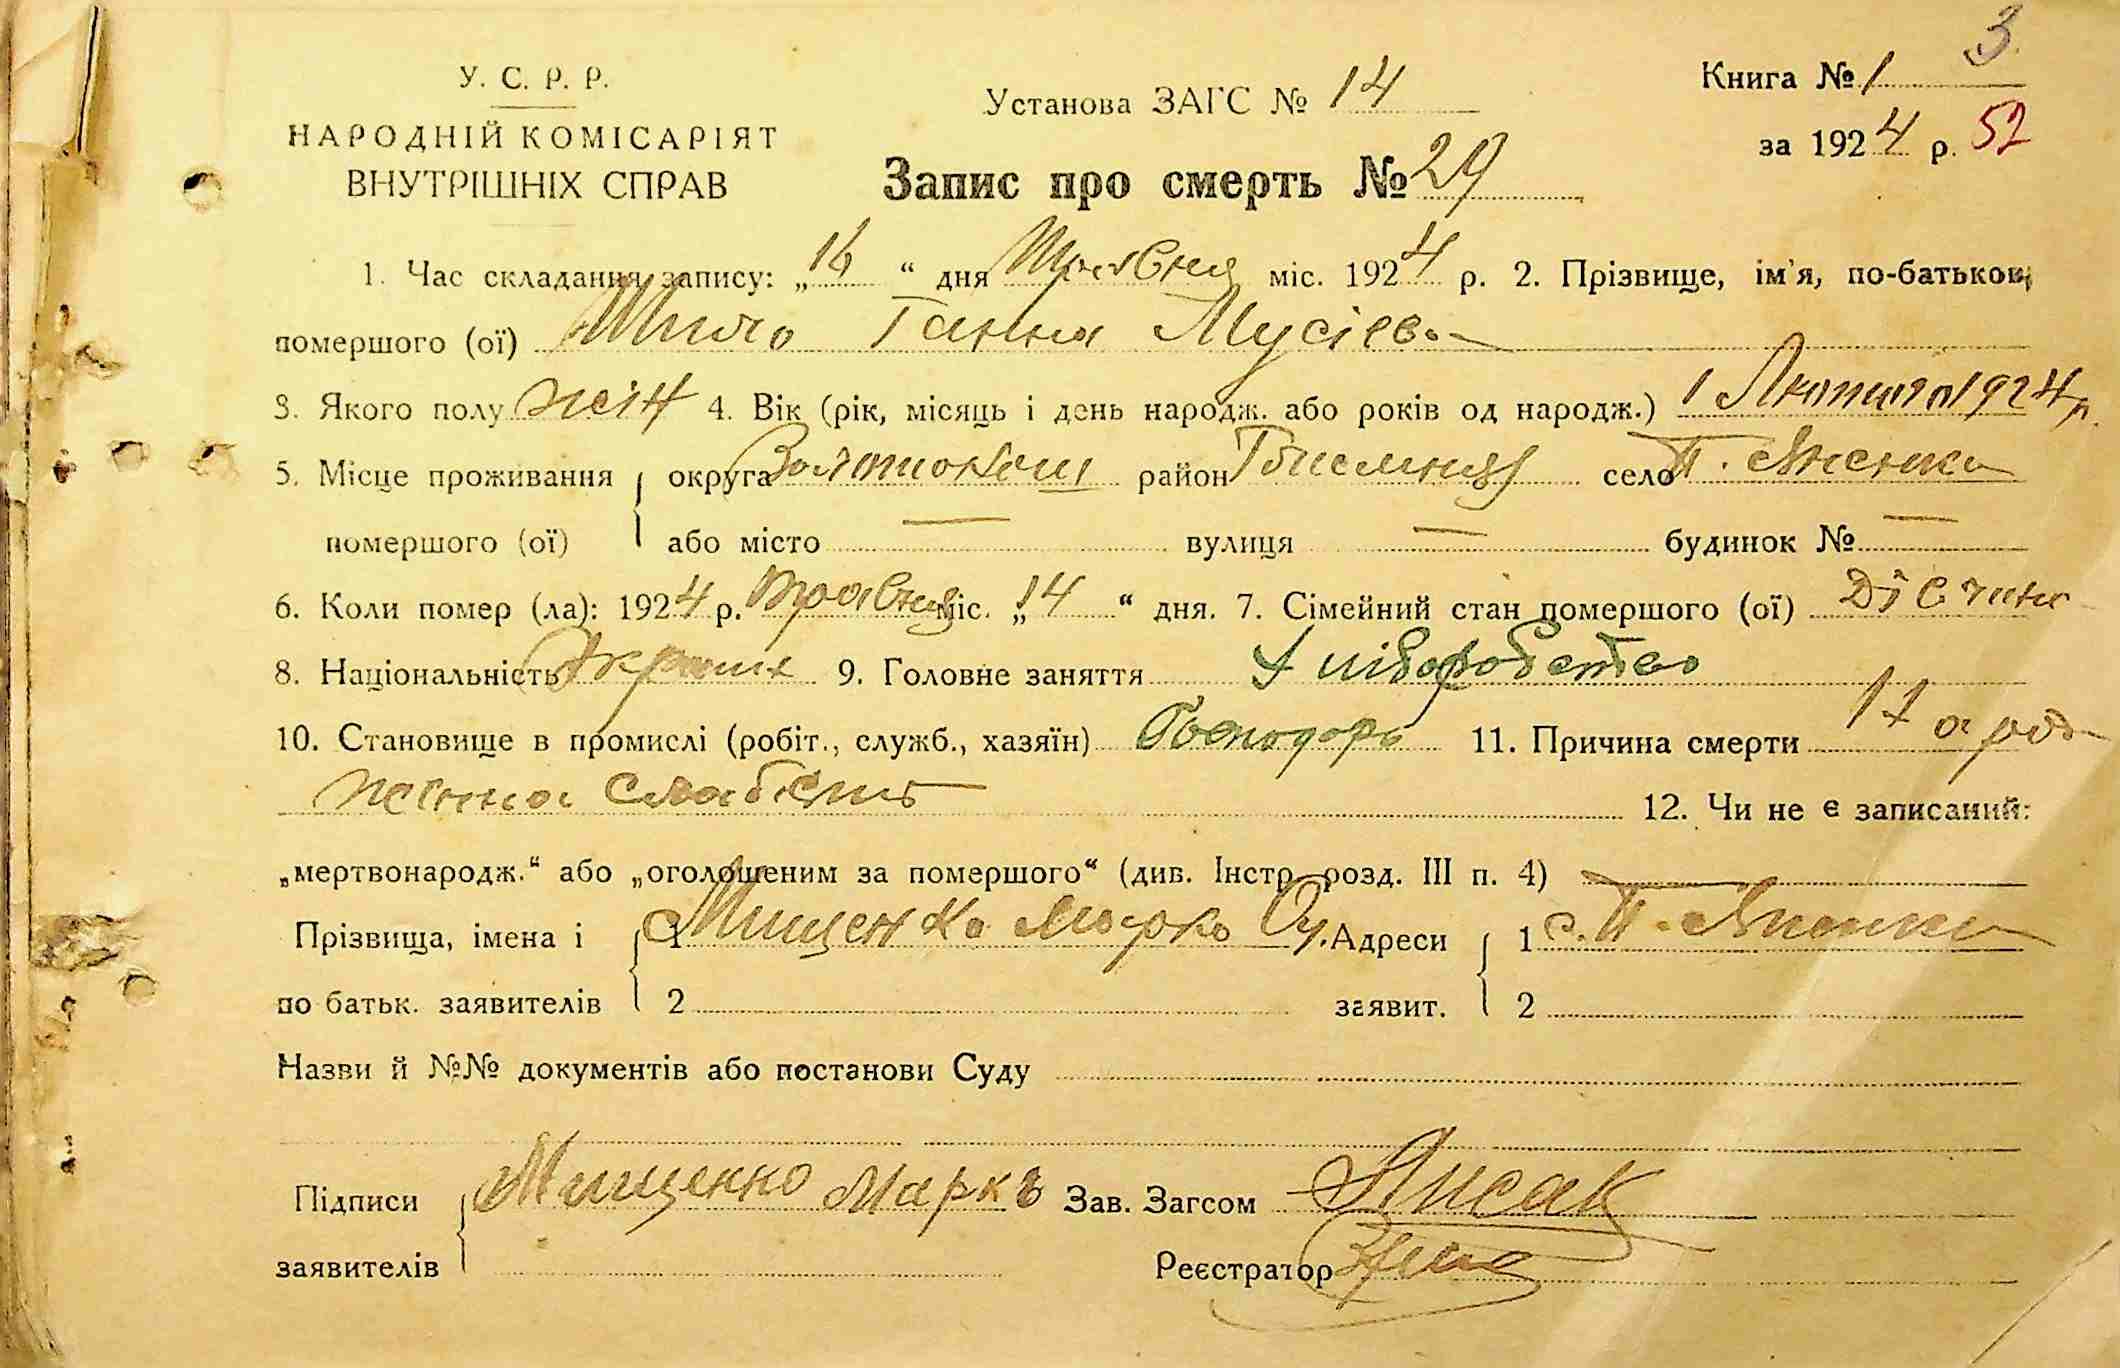 3
У. С. Р. Р.
НАРОДНІЙ КОМІСАРІЯТ
ВНУТРІШНІХ СПРАВ
Установа ЗАГС № 14
Книга № 1
за 1924 р. 52
Запис про смерть № 29
1. Час складання запису: „16“ дня Травня міс. 1924 р. 2. Прізвище, ім'я, по-батькові
помершого (ої) Шило Ганна Мусієв.
3. Якого полу жін 4. Вік (рік, місяць і день народж. або років од народж.) 1 Лютого 1924 р.
5. Місце проживання округа Золотоніськ район село П.
помершого (ої) або місто — вулиця — будинок № —
6. Коли помер (ла): 1924 р. Травня міс. „14“ дня. 7. Сімейний стан помершого (ої) Дівчина
8. Національність Україн 9. Головне заняття Хліборобство
10. Становище в промислі (робіт., служб., хазяїн) Господарь 11. Причина смерти Народ
женна слабість 12. Чи не є записаний:
„мертвонародж.“ або „оголошеним за помершого“ (див. Інстр. розд. III п. 4) —
Прізвища, імена і 1 Мищенко Марко Адреси 1 с. П.
по батьк. заявителів 2 заявит. 2
Назви й №№ документів або постанови Суду
Підписи Мищенко Маркъ Зав. Загсом Лисак
заявителів Реєстратор